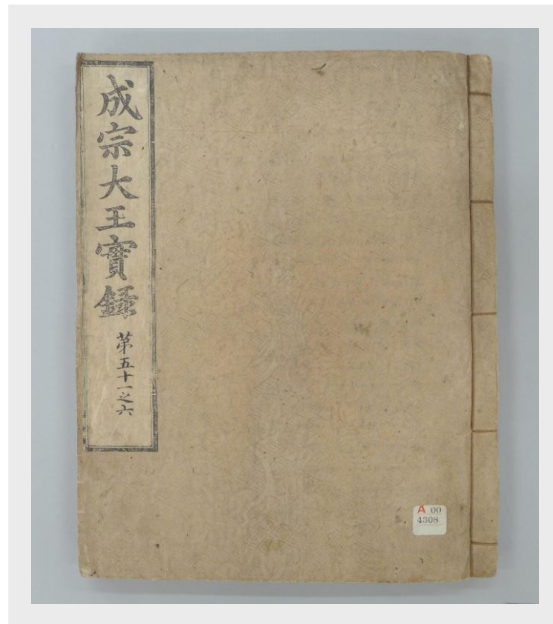 成宗大王實錄
第五十一之六
A 00
4308